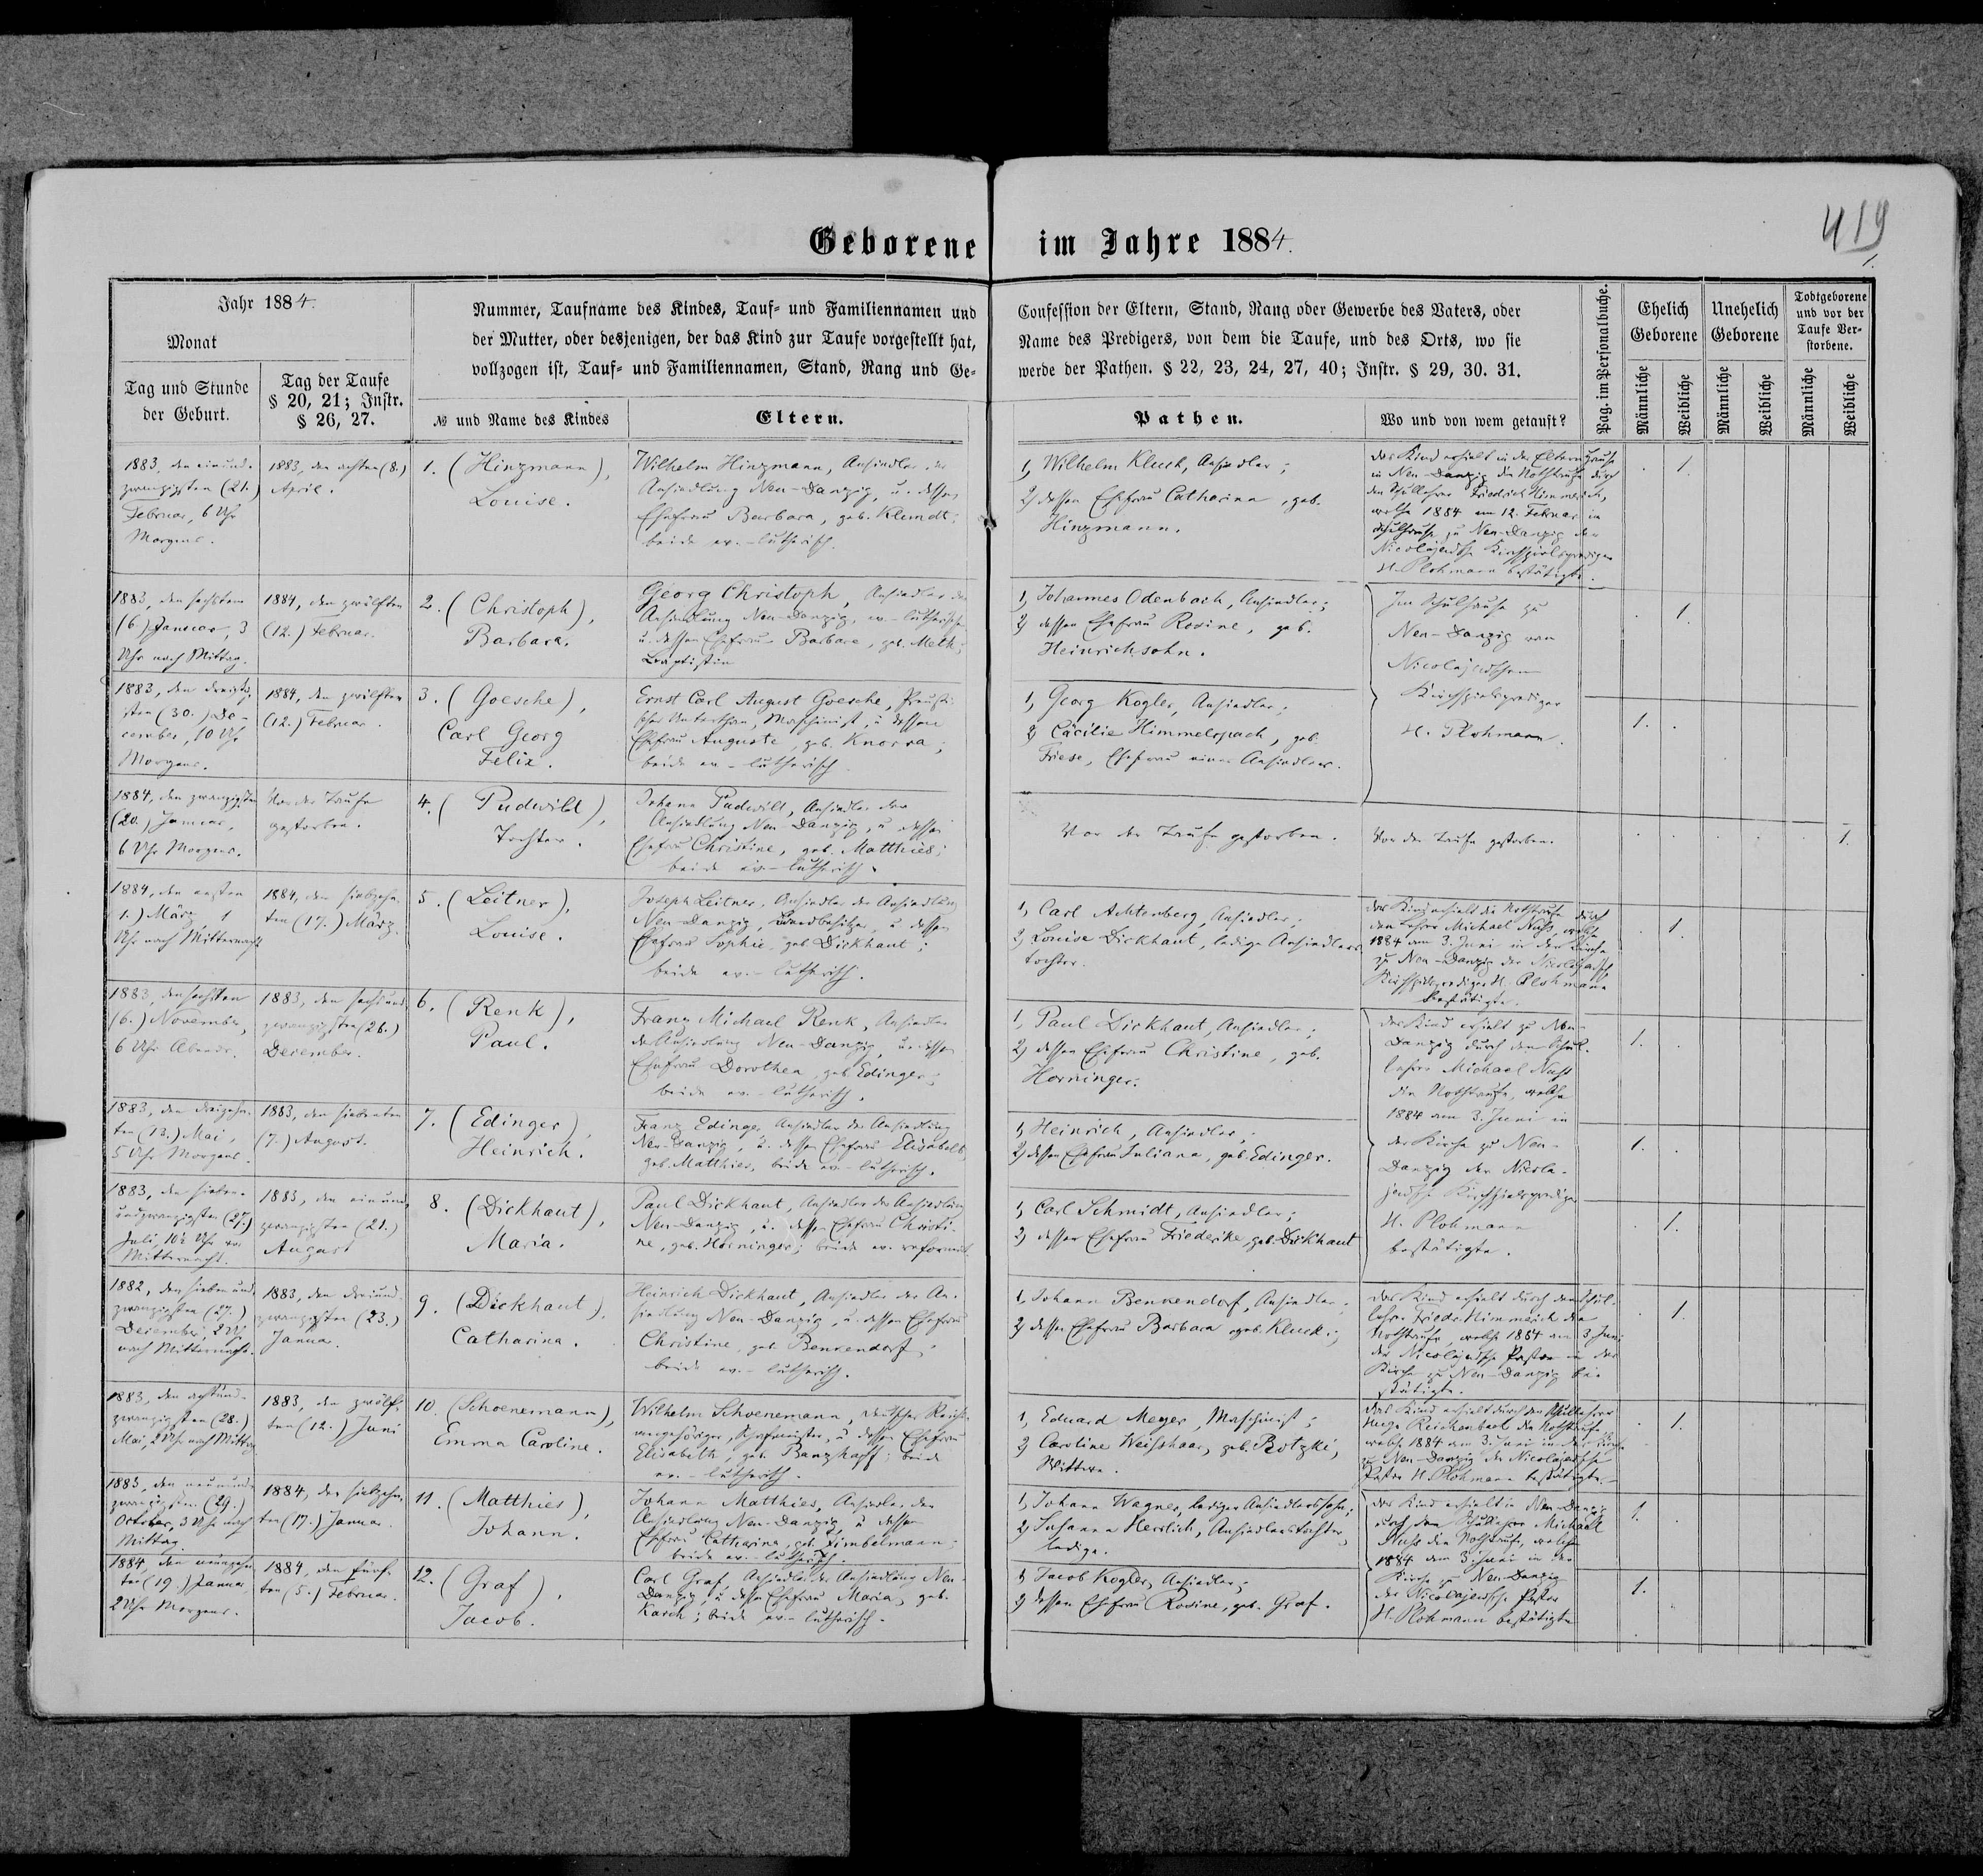 419
1.
Geborene im Jahre 1884.
Jahr 1884.
Monat
Tag und Stunde
der Geburt.
Tag der Taufe
§ 20, 21; Instr.
§ 26, 27.
Nummer, Taufname des Kindes, Tauf- und Familiennamen und
der Mutter, oder desjenigen, der das Kind zur Taufe vorgestellt hat,
vollzogen ist, Tauf- und Familiennamen, Stand, Rang und Ge-
№ und Name des Kindes
Eltern.
Confession der Eltern, Stand, Rang oder Gewerbe des Vaters, oder
Name des Predigers, von dem die Taufe, und des Orts, wo sie
werde der Pathen. § 22, 23, 24, 27, 40; Instr. § 29, 30. 31.
Pathen.
Wo und von wem getauft?
Pag. im Personalbuche.
Ehelich
Geborene
Unehelich
Geborene
Todtgeborene
und vor der
Taufe Ver-
storbene.
Männliche
Weibliche
Männliche
Weibliche
Männliche
Weibliche
1883, den einund-
zwanzigsten (21.)
Februar, 6 Uhr
Morgens.
1883, den achten (8.)
April.
1. (Hinzmann),
Louise.
Wilhelm Hinzmann, Ansiedler der
Ansiedlung Neu-Danzig, u. dessen
Ehefrau Barbara, geb. Klemdt;
beide ev.-lutherisch.
1, Wilhelm Kluck, Ansiedler;
2, dessen Ehefrau Catharina, geb.
Hinzmann.
das Kind erhielt in der Eltern Hause
in Neu-Danzig die Nothtaufe durch
den Schullehrer Friedrich Himmerich,
welche 1884 am 12. Februar im
Schulhause zu Neu-Danzig der
Nicolajewsche Kirchspielsprediger
H. Plohmann bestätigte.
1.
1883, den sechsten
(6.) Januar, 3
Uhr nach Mittag.
1884, den zwölften
(12.) Februar.
2. (Christoph),
Barbara.
Georg Christoph, Ansiedler der
Ansiedlung Neu-Danzig, ev.-lutherisch
u. dessen Ehefrau Barbara, geb. Meth;
Baptistin
1, Johannes Odenbach, Ansiedler;
2, dessen Ehefrau Rosine, geb.
Heinrichsohn.
Im Schulhause zu
Neu-Danzig von
Nicolajewschen
Kirchspielsprediger
H. Plohmann.
1.
1883, den dreißig-
sten (30.) De-
cember, 10 Uhr
Morgens.
1884, den zwölften
(12.) Februar.
3. (Goesche),
Carl Georg
Felix.
Ernst Carl August Goesche, Preußi-
scher Unterthan, Maschinist, u dessen
Ehefrau Auguste, geb. Knorra;
beide ev-lutherisch.
1, Georg Kogler, Ansiedler;
2, Cäcilie Himmelspach, geb.
Friese, Ehefrau eines Ansiedlers.
1.
1884, den zwanzigsten
(20.) Januar,
6 Uhr Morgens.
Vor der Taufe
gestorben.
4. (Pudwild),
Tochter.
Johann Pudwilt, Ansiedler der
Ansiedlung Neu-Danzig, u dessen
Ehefrau Christine, geb. Matthies;
beide ev-lutherisch.
Vor der Taufe gestorben.
Vor der Taufe gestorben.
1.
1884, den ersten
1.) März, 1
Uhr nach Mitternacht
1884, den siebzehn-
ten (17.) März.
5. (Leitner),
Louise.
Joseph Leitner, Ansiedler der Ansiedlung
Neu-Danzig, Landbesitzer, u dessen
Ehefrau Sophie geb. Dickhaut;
beide ev.-lutherisch.
1, Carl Achtenberg, Ansiedler;
2, Louise Dickhaut, ledige Ansiedlers
tochter.
das Kind erhielt die Nothtaufe durch
den Lehrer Michael Nuss, welche
1884 am 3. Juni in der Kirche
zu Neu-Danzig der Nicolajewsche
Kirchspielsprediger H. Plohmann
bestätigte.
1.
1883, den sechsten
(6.) November,
6 Uhr Abends.
1883, den sechsund-
zwanzigsten (26.)
December.
6. (Renk),
Paul.
Franz Michael Renk, Ansiedler
der Ansiedlung Neu-Danzig, u. dessen
Ehefrau Dorothea, geb. Edinger;
beide ev.-lutherisch.
1, Paul Dickhaut, Ansiedler;
2, dessen Ehefrau Christine, geb.
Horninger.
das Kind erhielt zu Neu-
Danzig durch den Schul-
lehrer Michael Nuss
die Nothtaufe, welche
1884 am 3. Juni in
der Kirche zu Neu-
Danzig der Nicola-
jewsche Kirchspielsprediger
H. Plohmann
bestätigte.
1.
1883, den dreizehn-
ten (13.) Mai,
5 Uhr Morgens.
1883, den siebenten
(7.) August.
7. (Edinger),
Heinrich.
Franz Edinger Ansiedler der Ansiedlung
Neu-Danzig, u. dessen Ehefrau Elisabeth
geb. Matthies, beide ev-lutherisch.
1, Heinrich, Ansiedler;
2, dessen Ehefrau Juliana, geb. Edinger.
1.
1883, den sieben-
undzwanzigsten (27.)
Juli, 10½ Uhr vor
Mitternacht.
1883, den einund-
zwanzigsten (21.)
August
8. (Dickhaut),
Maria.
Paul Dickhaut, Ansiedler der Ansiedlung
Neu-Danzig, u. dessen Ehefrau Christi-
ne, geb. Horninger; beide ev. reformirt
1, Carl Schmidt, Ansiedler;
2, dessen Ehefrau Friederike, geb. Dickhaut
1.
1882, den sieben und
zwanzigsten (27.)
December, 2 Uhr
nach Mitternacht.
1883, den dreiund-
zwanzigsten (23.)
Januar.
9. (Dickhaut),
Catharina.
Heinrich Dickhaut, Ansiedler der An-
siedlung Neu-Danzig, u. dessen Ehefrau
Christine, geb. Benkendorf,
beide ev.-lutherisch.
1, Johann Benkendorf, Ansiedler;
2, dessen Ehefrau Barbara geb. Kluck;
das Kind erhielt durch den Schul-
lehrer Friedr. Himmerich die
Nothtaufe, welche 1884 am 3 Juni
der Nicolajewsche Pastor in der
Kirche zu Neu-Danzig be-
stätigte.
1.
1883, den achtund-
zwanzigsten (28.)
Mai, 2 Uhr nach Mittag
1883, den zwölf-
ten (12.) Juni
10 (Schoenemann),
Emma Caroline.
Wilhelm Schoenemann, deutscher Reichs-
angehöriger, u dessen Ehefrau
Elisabeth, geb. Banzhaff; beide
ev.-lutherisch.
1, Eduard Meyer, Maschinist;
2, Caroline Weisshaar, geb. Rotzki,
Wittwe.
das Kind erhielt durch den Schullehrer
Hugo Reichenbach die Nothtaufe
welche 1884 am 3. Juni in der Kirche
zu Neu-Danzig der Nicolajewsche
Pastor H. Plohmann bestätigte.
1.
1883, den neunund-
zwanzigsten (29.)
October, 3 Uhr nach
Mittag.
1884, den siebzehn-
ten (17.) Januar.
11. (Matthies),
Johann.
Johann Matthies, Ansiedler der
Ansiedlung Neu-Danzig u dessen
Ehefrau Catharina, geb. Zimbelmann;
beide ev.-lutherisch.
1, Johann Wagner, lediger Ansiedlerssohn;
2, Susanna Herrlich, Ansiedlerstochter
ledige.
das Kind erhielt in Neu-Danzig
durch den Schullehrer Michael
Nuss die Nothtaufe, welche
1884 am 3. Juni in der
Kirche zu Neu-Danzig
der Nicolajewsche Pastor
H. Plohmann bestätigte
1.
1884 den neunzehn-
ten (19.) Januar
2 Uhr Morgens.
1884, den fünf-
ten (5.) Februar.
12. (Graf),
Jacob.
Carl Graf, Ansiedler der Ansiedlung Neu-
Danzig, u dessen Ehefrau Maria, geb.
Karch; beide ev-lutherisch.
1, Jacob Kogler, Ansiedler;
2, dessen Ehefrau Rosine, geb. Graf.
1.